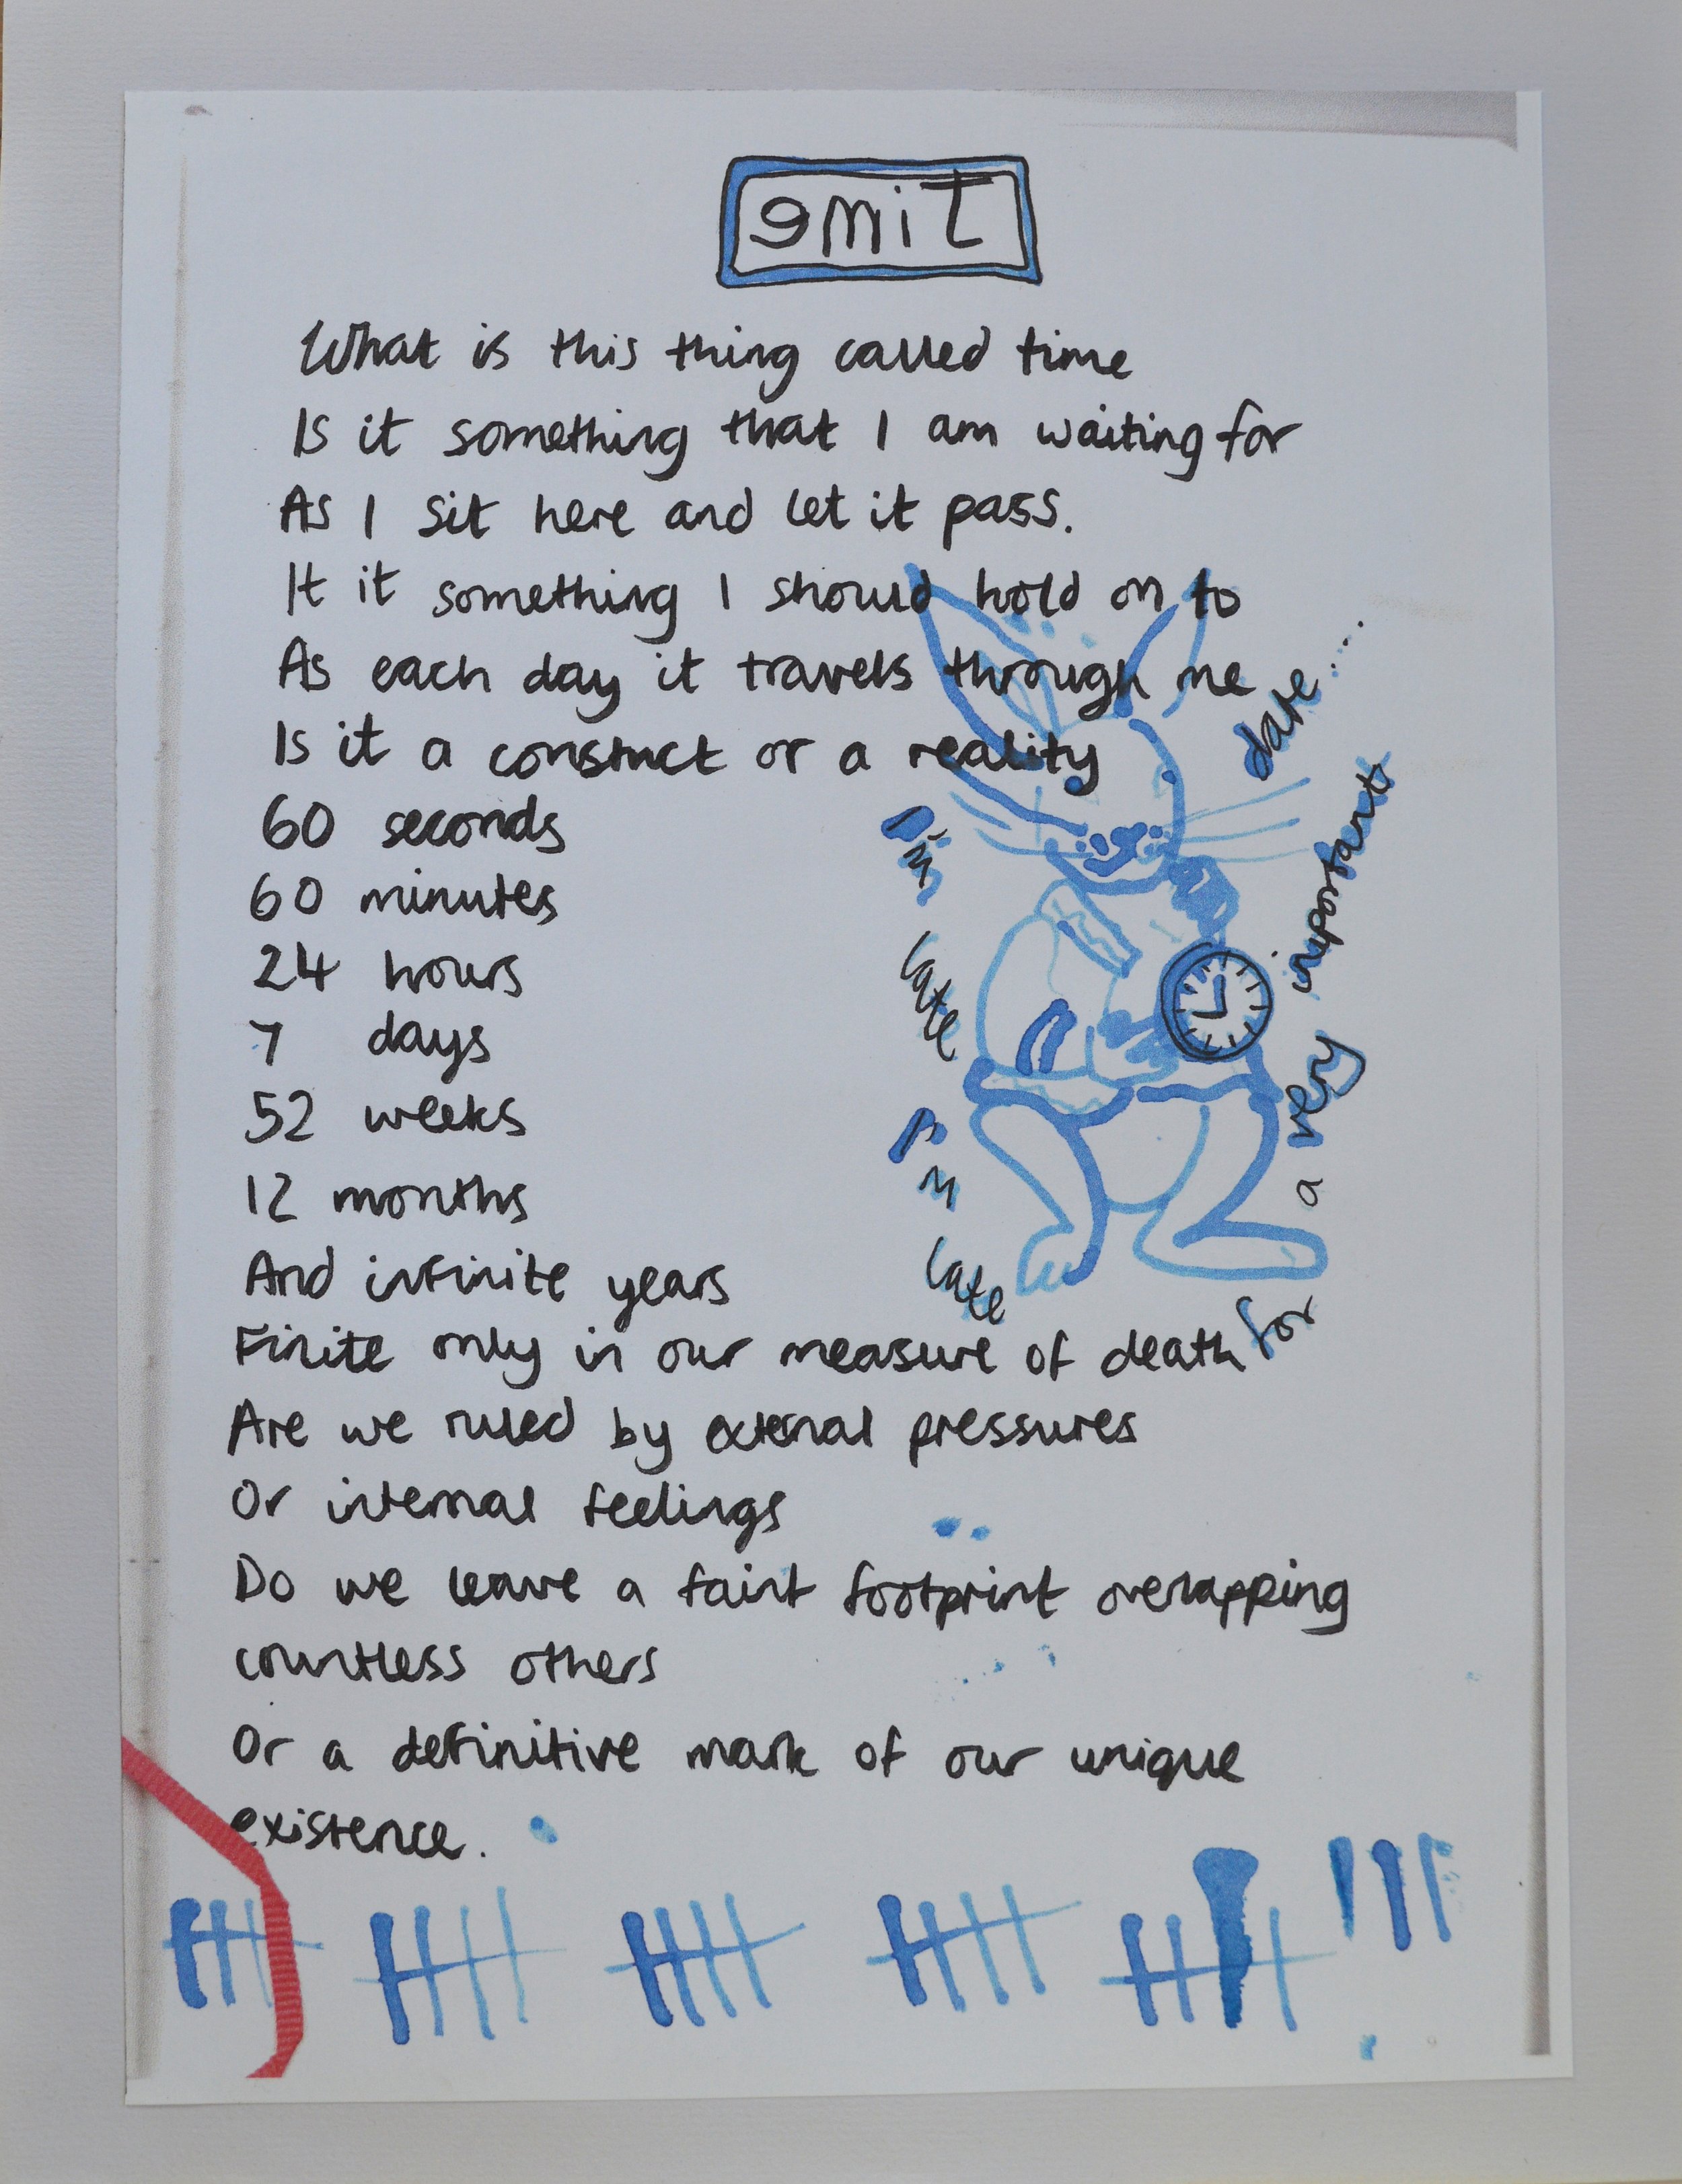 emiT
What is this thing called time
Is it something that I am waiting for
As I sit here and let it pass.
It it something I should hold on to
As each day it travels through me
Is it a construct or a reality
60 seconds
60 minutes
24 hours
7 days
52 weeks
12 months
And infinite years
Finite only in our measure of death
Are we ruled by external pressures
Or internal feelings
Do we leave a faint footprint overlapping
countless others
Or a definitive mark of our unique
existence.
I'm late
I'm late
for a very important date....